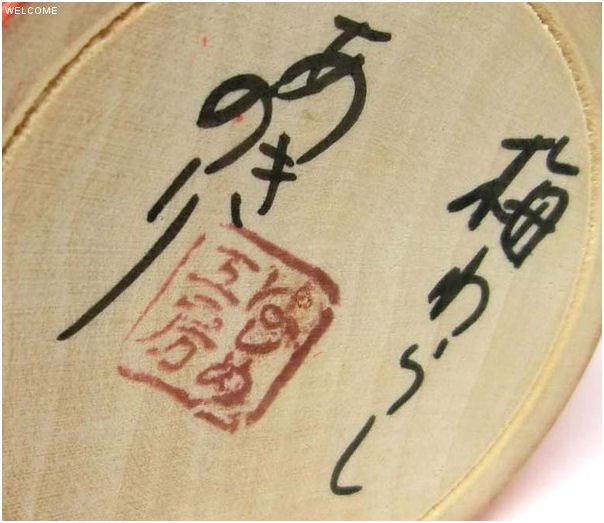 WELCOME
梅わらし
あきのり
工房